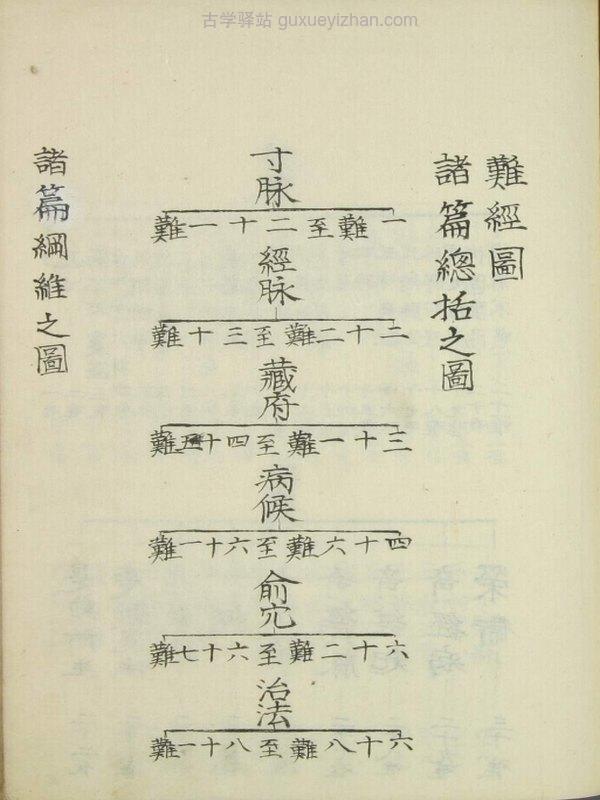 古学驿站 guxueyizhan.com
難經圖
諸篇總括之圖
寸脉
一難至二十一難
經脉
二十二難至三十難
藏府
三十一難至四十五難
病候
四十六難至六十一難
俞穴
六十二難至六十七難
治法
六十八難至八十一難
諸篇綱維之圖